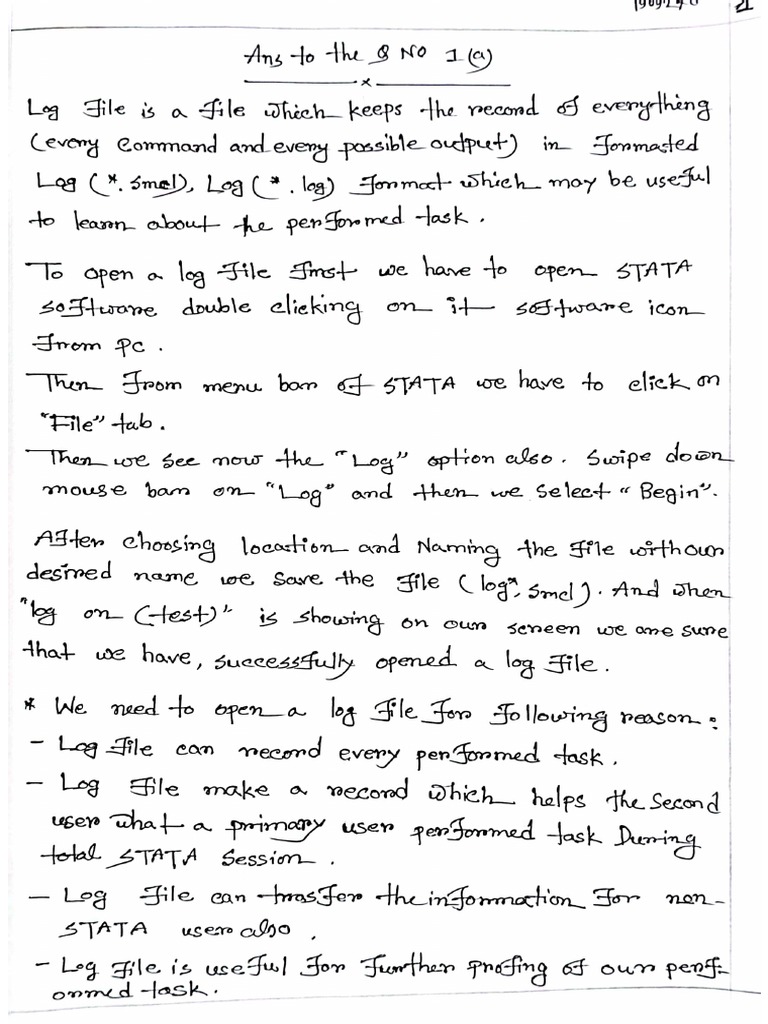 Ans to the Q NO 1(a)
x
Log File is a file which keeps the record of everything
(every command and every possible output) in Formated
Log (*.smcl), Log (*.log) Format which may be useful
to learn about the performed task.
To open a log File First we have to open STATA
software double clicking on it software icon
From pc.
Then From menu bar of STATA we have to click on
"File" tab.
Then we see now the "Log" option also. Swipe down
mouse bar on "Log" and then we select "Begin".
After choosing location and Naming the File with our
desired name we save the File (log*.smcl). And when
"log on (test)" is showing on our screen we are sure
that we have, successfully opened a log File.
* We need to open a log File For Following reason:
- Log File can record every performed task.
- Log File make a record which helps the second
user what a primary user performed task During
total STATA Session.
- Log File can trasfer the information For non-
STATA user also.
- Log File is useful For Further profing of our perf-
ormed task.